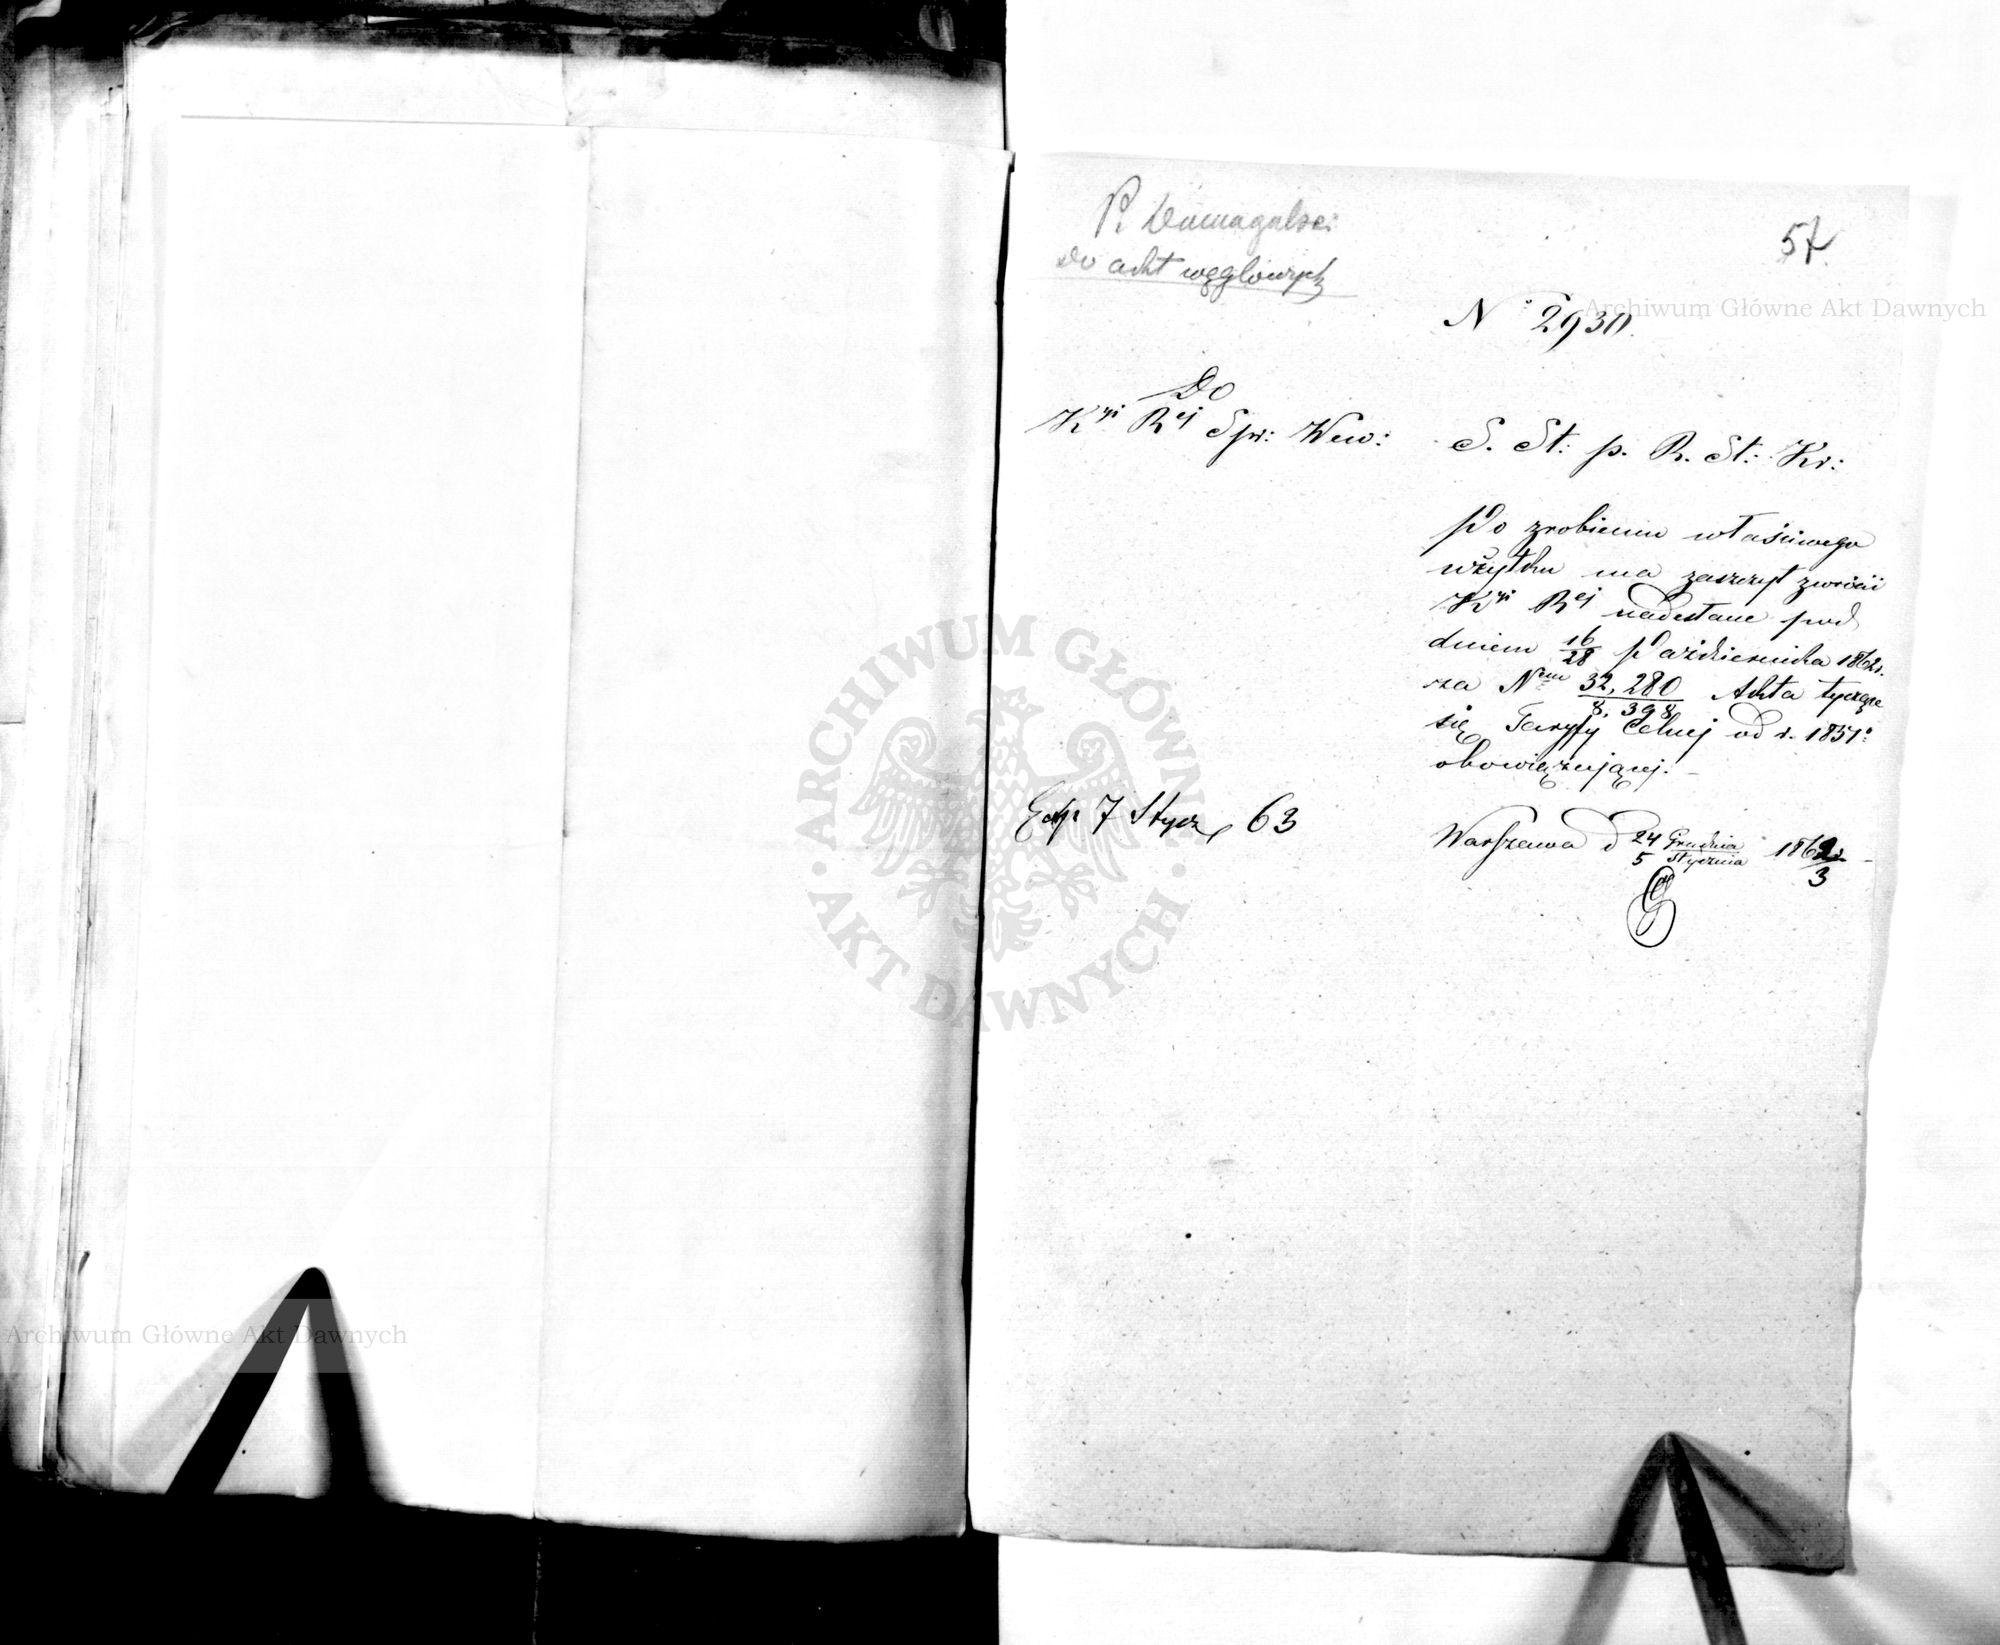 P. Domagalski
do akt węglowych
57
Archiwum Główne Akt Dawnych
N° 2930.
Do
Kyi Rej Spr: Wew:
S. St: p. R. St: Kr:
Po zrobieniu właściwego
użytku ma zaszczyt zwrócić
Kyi Rej nadesłane pod
dniem 16/28 Października 1862 r.
za Nem 32,280/8,398 Akta tyczące
się Taryfy Celnej od r. 1851°
obowiązującej.
Exp. 7 Stycz 63
Warszawa d 24 Grudnia/5 Stycznia 1862/3
ARCHIWUM GŁÓWNE
AKT DAWNYCH
Archiwum Główne Akt Dawnych